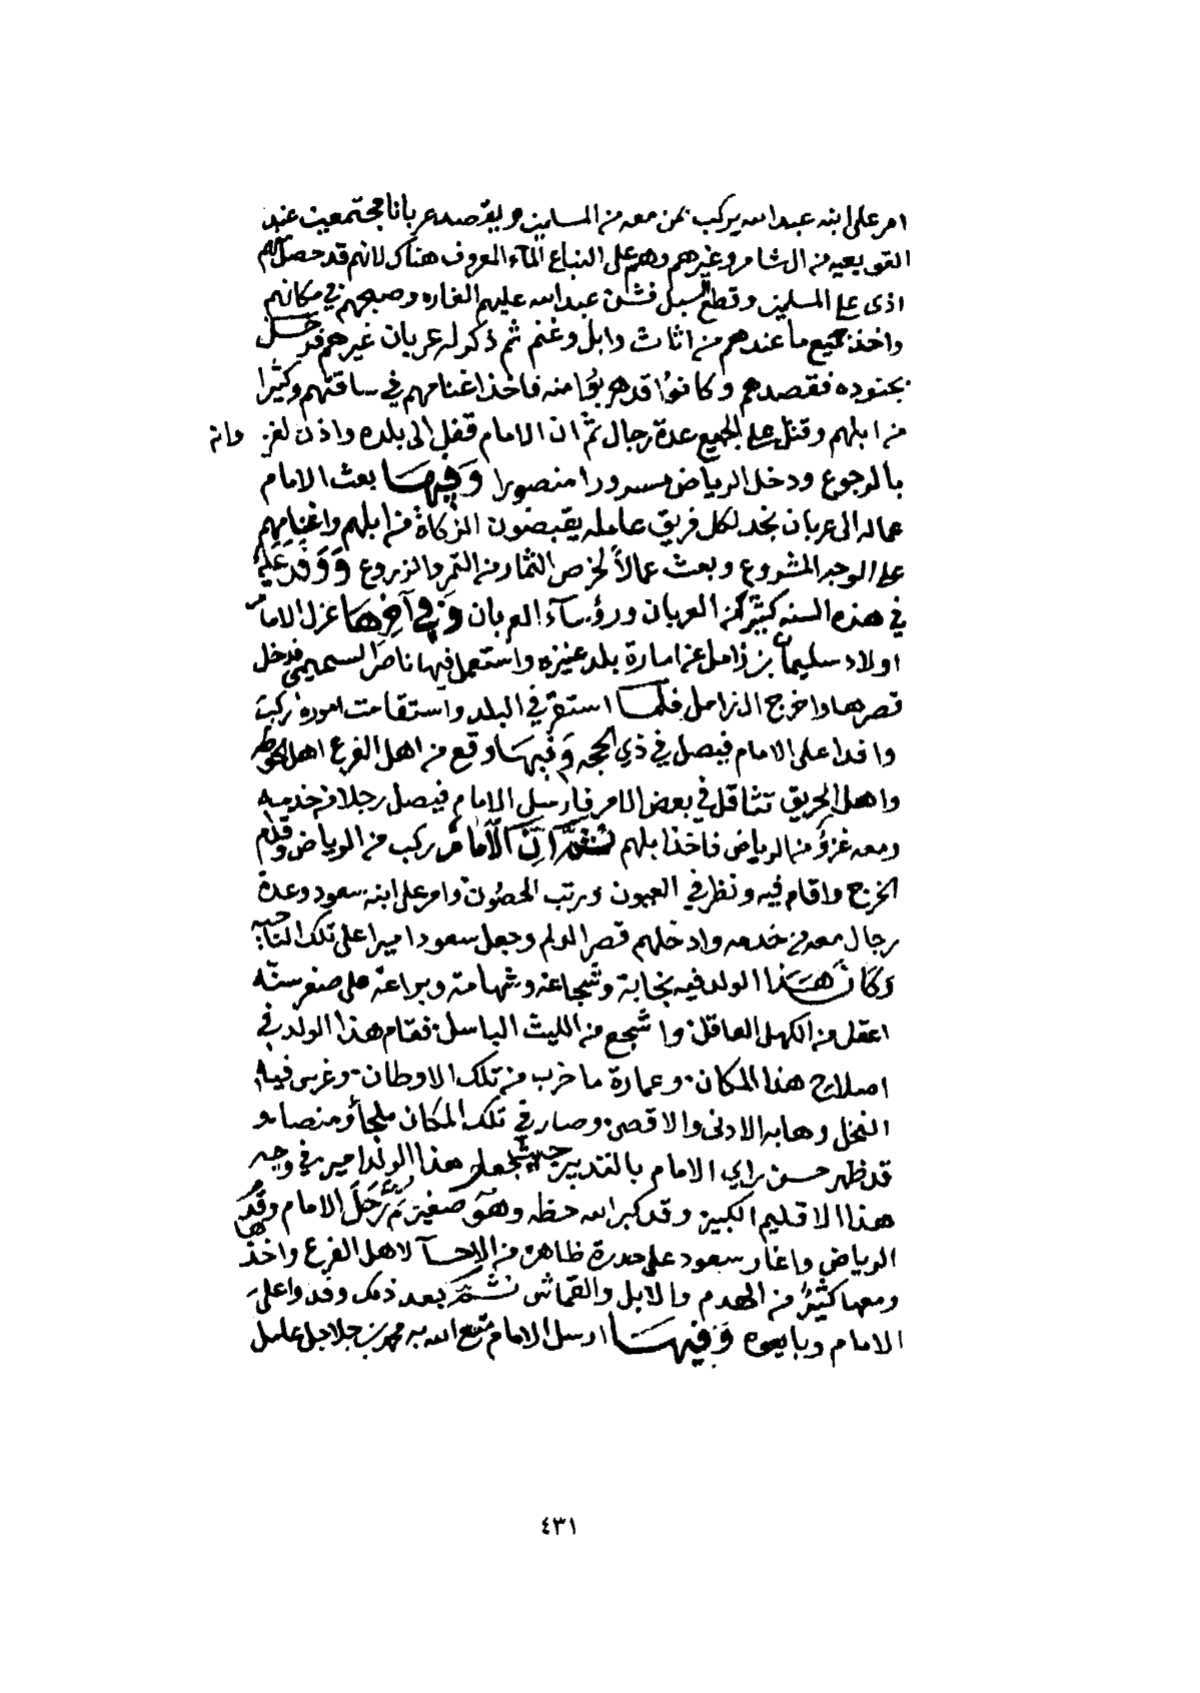 امر على ابنه عبدالله يركب بمن معه من المسلمين ويقصد عربانا مجتمعين عند
القويعيه من الشامر وغيرهم وهم على النباع الماء المعروف هناك لانهم قد حصل منهم
اذى على المسلمين وقطع السبل فشن عبدالله عليهم الغاره وصبحهم في مكانهم
واخذ جميع ما عندهم من اثاث وابل وغنم ثم ذكر له عربان غيرهم فرحل
بجنوده فقصدهم وكانوا قد هربوا منه فاخذ اغنامهم في ساقتهم وكثيرا
من ابلهم وقتل على الجميع عدة رجال ثم ان الامام قفل الى بلده واذن لغزوانه
بالرجوع ودخل الرياض مسرورا منصورا وَفِيهَا بعث الامام
عماله الى عربان نجد لكل فريق عامله يقبضون الزكاة من ابلهم واغنامهم
على الوجه المشروع وبعث عمالاً لخرص الثمار من التمر والزروع وَوَفَدَ عَلَيْهِ
في هذه السنه كثير من العربان ورؤساء العربان وَفِي آخِرِهَا عزل الامام
اولاد سليمان بن زامل عن امارة بلد عنيزه واستعمل فيها ناصر السحيمي فدخل
قصرها واخرج ال زامل فلما استقر في البلد واستقامت اموره ركب
وافدا على الامام فيصل في ذي الحجه وَفِيهَا وقع من اهل الفرع اهل الحوطه
واهل الحريق تثاقل في بعض الامر فارسل الامام فيصل رجلا من خدمه
ومعه غزو من الرياض فاخذ ابلهم ثُمَّ اِنَّ الْاِمَامَ ركب من الرياض وقدم
الخرج واقام فيه ونظر في العيون ورتب الحصون وامر على ابنه سعود وعدة
رجال معه من خدمه وادخلهم قصر الدلم وجعل سعود اميرا على تلك الناحيه
وَكَانَ هَذَا الولد فيه نجابة وشجاعه وشهامة وبراعة على صغر سنه
اعقل من الكهل العاقل واشجع من الليث الباسل فقام هذا الولد في
اصلاح هذا المكان وعمارة ما خرب من تلك الاوطان وغرس فيه
النخل وهابه الادنى والاقصى وصار في تلك المكان ملجأ ومنصا و
قد ظهر حسن راي الامام بالتدبير حيث جعل هذا الولد امير في وجه
هذا الاقليم الكبير وقد كبر الله حظه وهو صغير ثم رَحَلَ الامام وقصد
الرياض واغار سعود على حدرة ظاهرة من الاحسآ لاهل الفرع واخذها
ومعها كثيرُ من الهدم والابل والقماش ثُمَّ بعد ذلك وفدوا على
الامام وبايعوه وَفِيهَا ارسل الامام متع الله به محمد بن جلاجل عامل
٤٣١